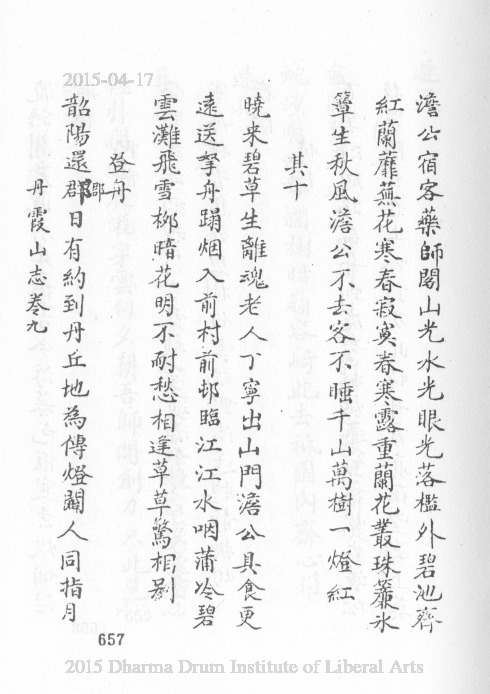 2015-04-17
澹公宿客藥師閣山光水光眼光落檻外碧池齊
紅蘭蘼蕪花寒春寂寞春寒露重蘭花叢珠簾氷
簟生秋風澹公不去客不睡千山萬樹一燈紅
其十
曉来碧草生離魂老人丁寧出山門澹公具食更
遠送拏舟蹋烟入前村前邨臨江江水咽蒲冷碧
雲灘飛雪柳暗花明不耐愁相逢草草驚相别
登舟
韶陽還郡郡日有約到丹丘地為傳燈闢人同指月
丹霞山志卷九
657
2015 Dharma Drum Institute of Liberal Arts